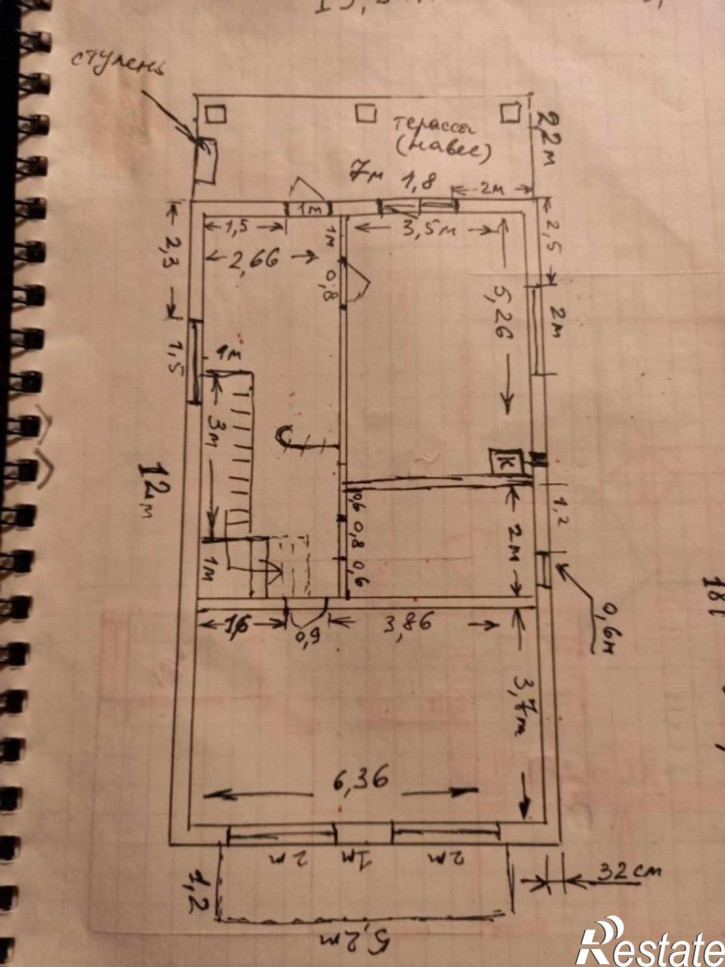 ступень
терасса
(навес)
2,2м
7м
1,8
2м
1м
1,5
1м
3,5м
2,5
2,3
2,66
0,8
5,26
2м
1,5
1м
3м
К
12м
0,6
1,2
0,8
2м
1м
0,6
0,6м
1,6
0,9
3,86
3,7м
6,36
2м
1м
2м
1,2
32см
5,2м
Restate